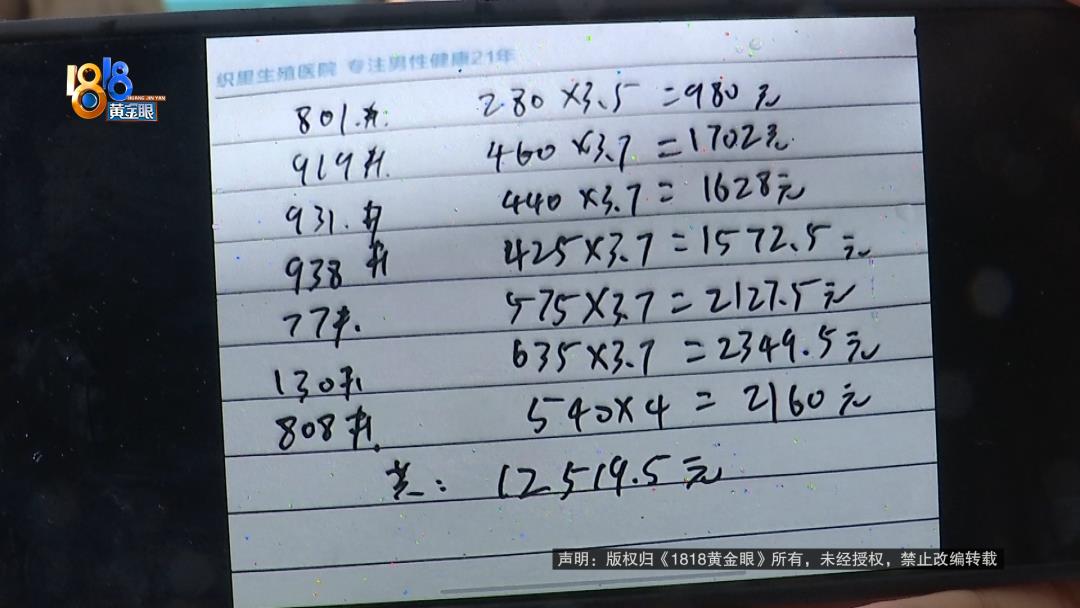 1818
HUANG JIN YAN
黄金眼
织里生殖医院 专注男性健康21年
801.#. 280×3.5=980元
919#. 460×3.7=1702元
931.# 440×3.7=1628元
938# 425×3.7=1572.5元
77#. 575×3.7=2127.5元
130# 635×3.7=2349.5元
808#. 540×4=2160元
共: 12519.5元
声明：版权归《1818黄金眼》所有，未经授权，禁止改编转载